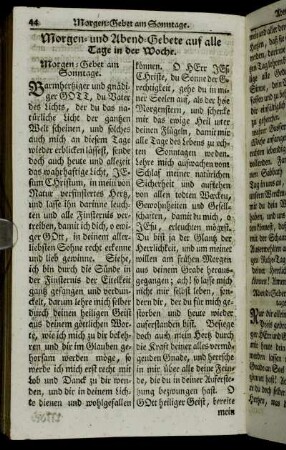 44 Morgen-Gebet am Sonntage.
Morgen- und Abend-Gebete auf alle
Tage in der Woche.
Morgen-Gebet am
Sonntage.
Barmhertziger und gnädi-
ger GOTT, du Vater
des Lichts, der du das na-
türliche Licht der gantzen
Welt scheinen, und solches
auch mich an diesem Tage
wieder erblicken lässest, sende
doch auch heute und allezeit
das wahrhaftige Licht, JE-
sum Christum, in mein von
Natur verfinstertes Hertz,
und lasse ihn darinne leuch-
ten und alle Finsternis ver-
treiben, damit ich dich, o ewi-
ger GOtt, in deinem aller-
liebsten Sohne recht erkenne
und lieb gewinne. Siehe,
ich bin durch die Sünde in
der Finsternis der Eitelkeit
gantz gefangen und verdun-
ckelt, darum lehre mich selber
durch deinen heiligen Geist
aus deinem göttlichen Wor-
te, wie ich mich zu dir bekeh-
ren und dir im Glauben ge-
horsam werden möge, so
werde ich mich erst recht mit
Lob und Danck zu dir wen-
den, und dir in deinem Lich-
te dienen und wohlgefallen
können. O HErr JESu
CHriste, du Sonne der Ge-
rechtigkeit, gehe du in mei-
ner Seelen auf, als der helle
Morgenstern, und schencke
mir das ewige Heil unter
deinen Flügeln, damit mir
alle Tage des Lebens zu ech-
ten Sonntagen werden.
Lehre mich aufwachen vom
Schlaf meiner natürlichen
Sicherheit und aufstehen
von allen todten Wercken,
Gewohnheiten und Gesell-
schaften, damit du mich, o
JEsu, erleuchten mögest.
Du bist ja der Glantz der
Herrlichkeit, und um meinet
willen am frühen Morgen
aus deinem Grabe heraus-
gegangen; ach! so lasse mich
nicht mir selbst leben, son-
dern dir, der du für mich ge-
storben und heute wieder
auferstanden bist. Besiege
doch auch mein Hertz durch
die Kraft deiner alles vermö-
genden Gnade, und herrsche
in mir über alle deine Fein-
de, die du in deiner Auferste-
hung bezwungen hast. O
GOtt heiliger Geist, bereite
mein